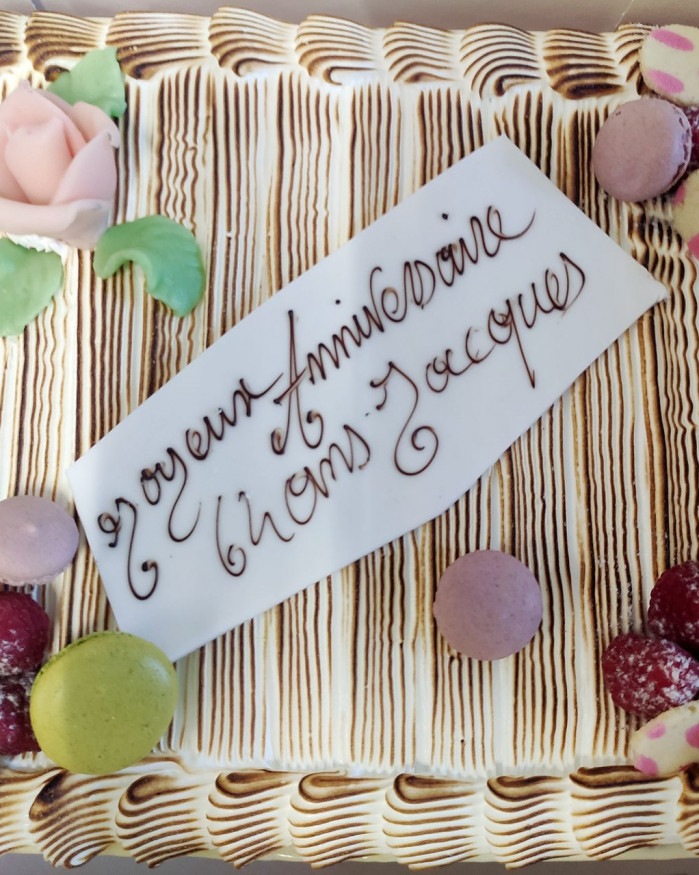 Joyeux Anniversaire
Hans-Jacques